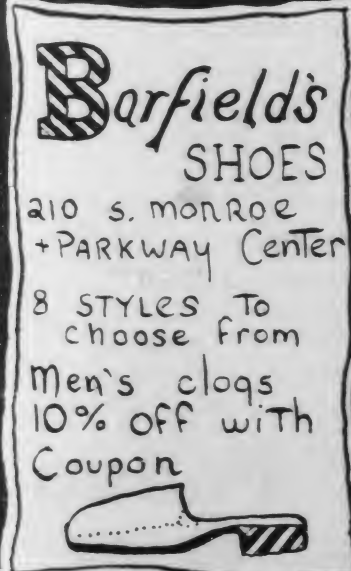 Barfield's
SHOES
210 S. MONROE
+ PARKWAY Center
8 STYLES TO
choose from
Men's clogs
10% OFF with
Coupon